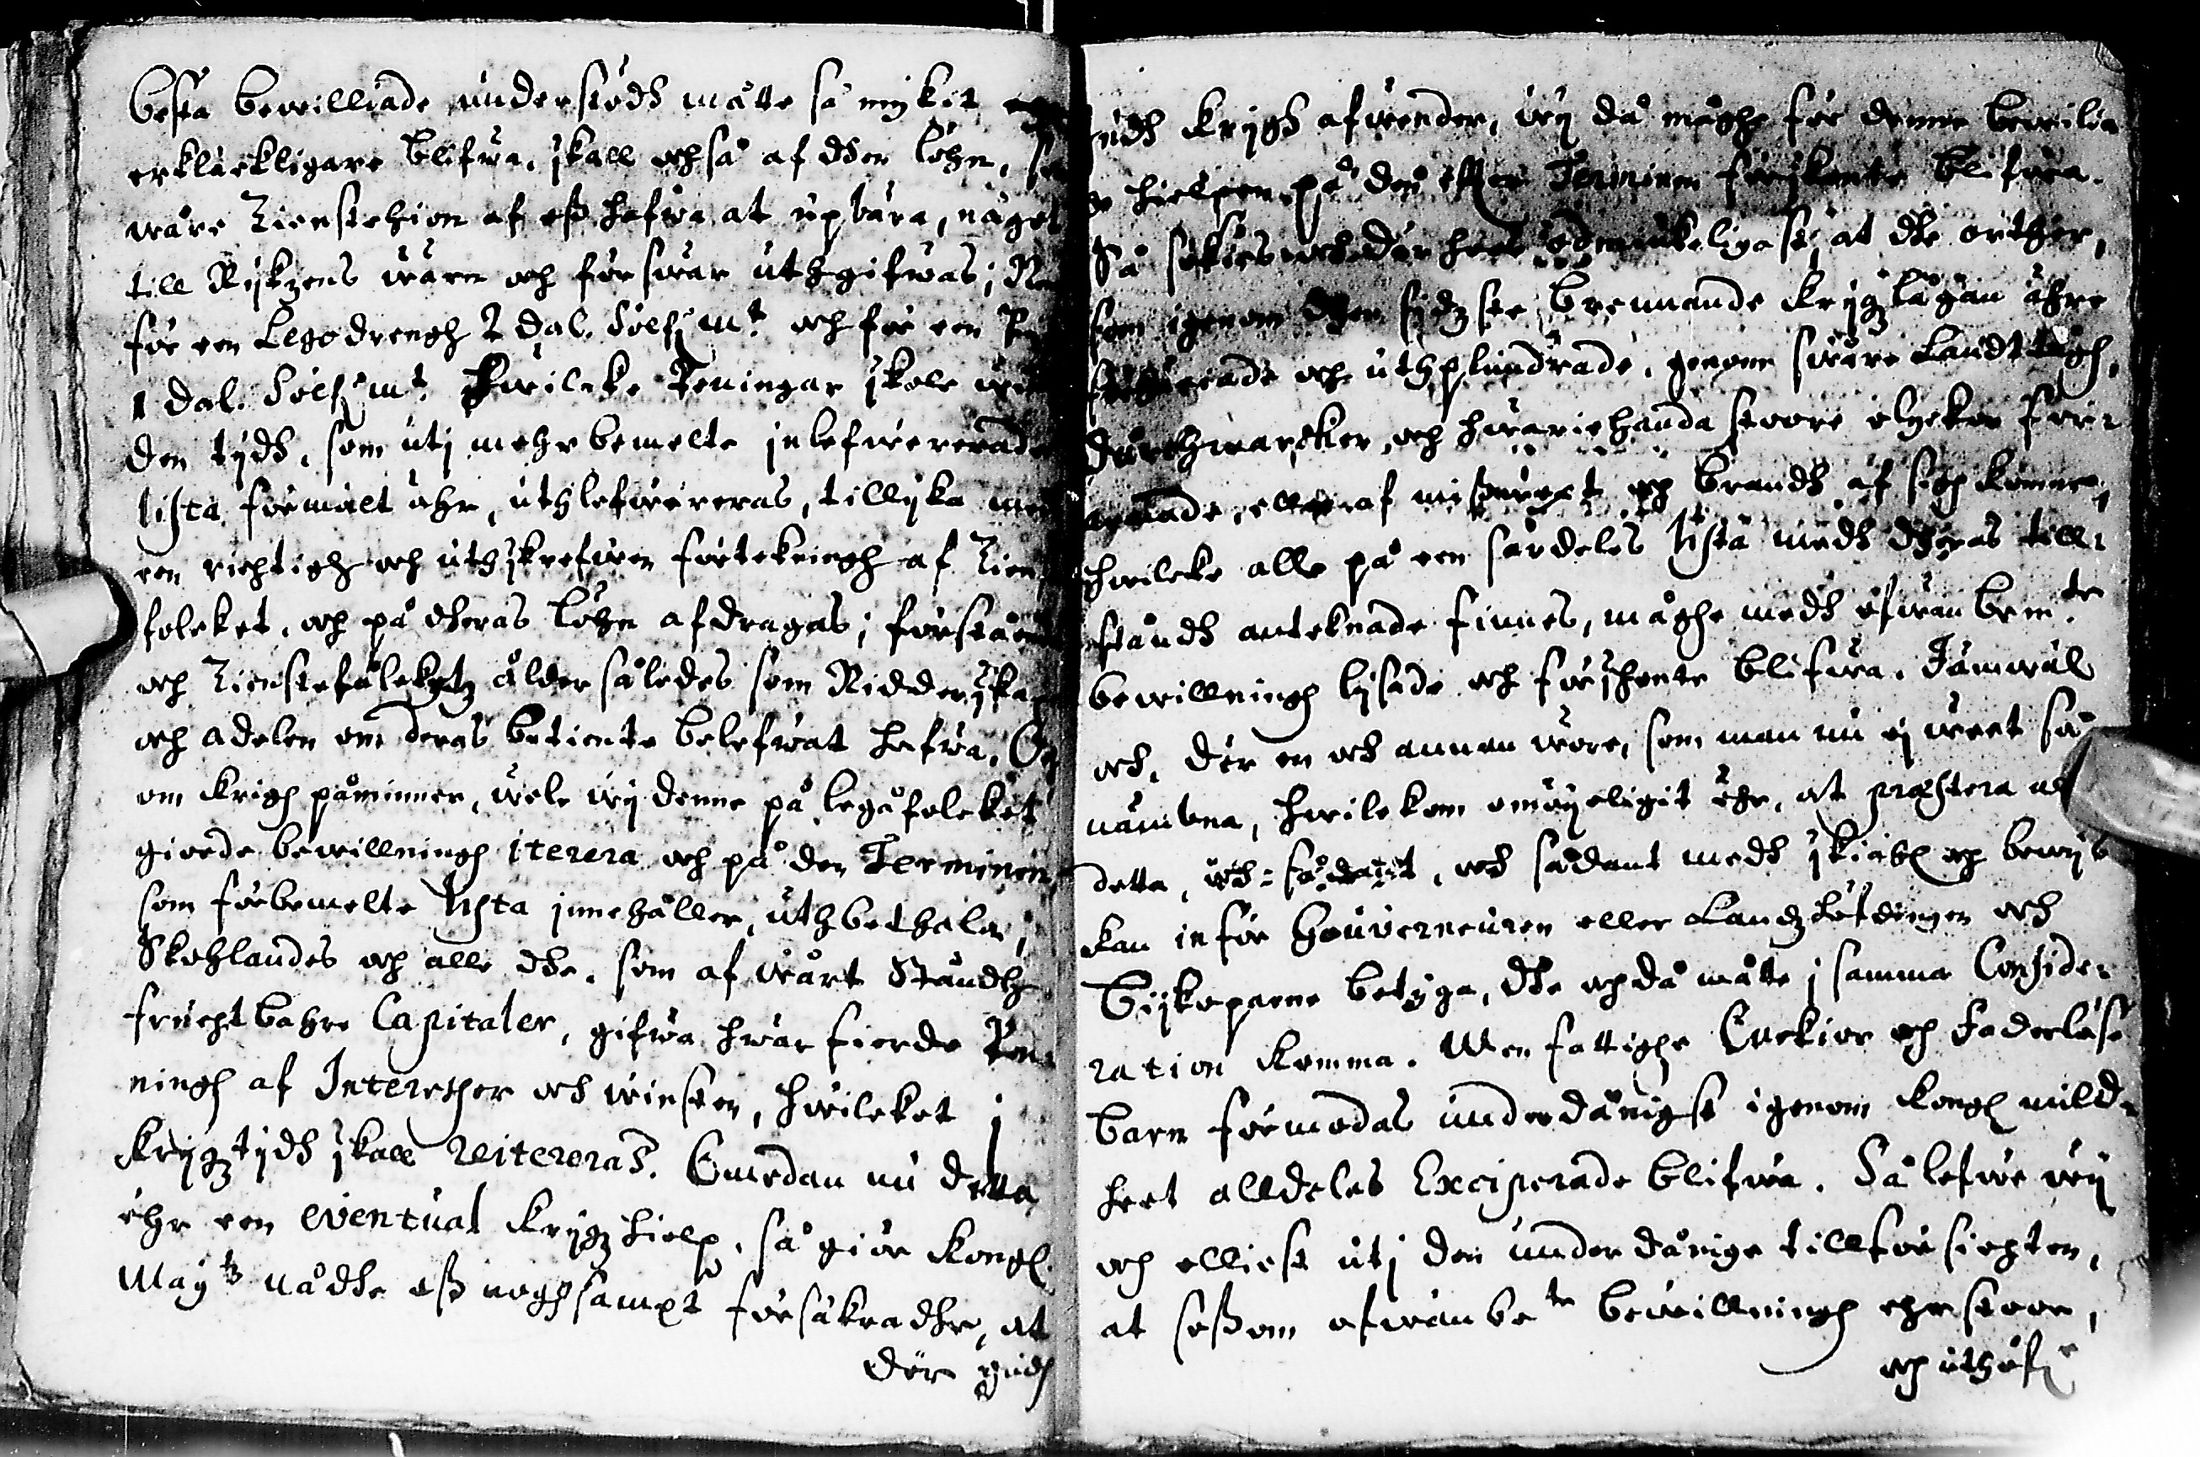 besta bewilliade understödh måtte så myket
erkläckligare blifwa, skall ochså af dher löhn,
wåre Tienstehion af oß hafwa at upbära, något
till Rijkzens wärn och förswar uthgifwas;
för een Legodrengh 2 dal. Sölf: mt och för een
1 dal. Sölf: mt. Hwilcke Peningar skole
den tijdh, som utj mehrbemelte inlefwererade
lista förmält ähr, uthlefwereras, tillijka medh
een richtigh och uthskrefwen förtekningh af
folcket, och på dheras löhn afdragas;
och Tienstefålcketz ålder således som Ridderska
och Adelen om deras betiente belefwat hafwa. Och
om krigh påminner, wele wij denne på legåfolcket
giorde bewillningh iterera och på den Terminen,
som förbemelte Lista innehåller, uthbethala;
Skohlandes och alle dhe, som af wårt Ståndh
fruchtbahre Capitaler, gifwa hwar fierde Pen-
ningh af Interesser och winster, hwilcket j
Krijgztijdh skall reitereras. Emedan nu detta
ähr een eventual Krijgzhielp, så giör Kongl.
Maytz nådhe oß noghsampt försäkradhe, at
der gudh
gudh krigh afwender, wij då måghe för denne bewilia-
de hielpen på den Terminen förskonte blifwa.
Så sökies och der hoos ödmiukeligast, at dhe orther,
som igenom dhen sidzste brennande Krijgzlågan ähre
och uthplundrade, genom swåre Landttågh,
durchmarcher, och hwariehanda store olyckor
eller af mißwext och brandh af sigh komne,
hwilcke alle på een särdeles Lista medh dheras till-
ståndh anteknade finnes, måghe medh ofwan bem:te
bewillningh lijsade och förskonte blifwa. Jämwäl
och, der en och annan wore, som man nu ej weet så
nämbna, hwilckom omöyeligit ähr, at præstera alt
detta, och sådant medh skiähl och bewijs
kan inför Gouverneuren eller Landzhöfdingen och
Biskoparne betyga, dhe och då måtte j samma Conside-
ration komma. Men fattighe Enckior och Faderlöse
barn förmodas underdånigst igenom Kongl mild-
heet alldeles Exciperade blifwa. Så lefwe wij
och elliest utj den underdånige tillförsichten,
at såßom ofwanbe:te bewillningh ehr stoor,
och uthöf:r